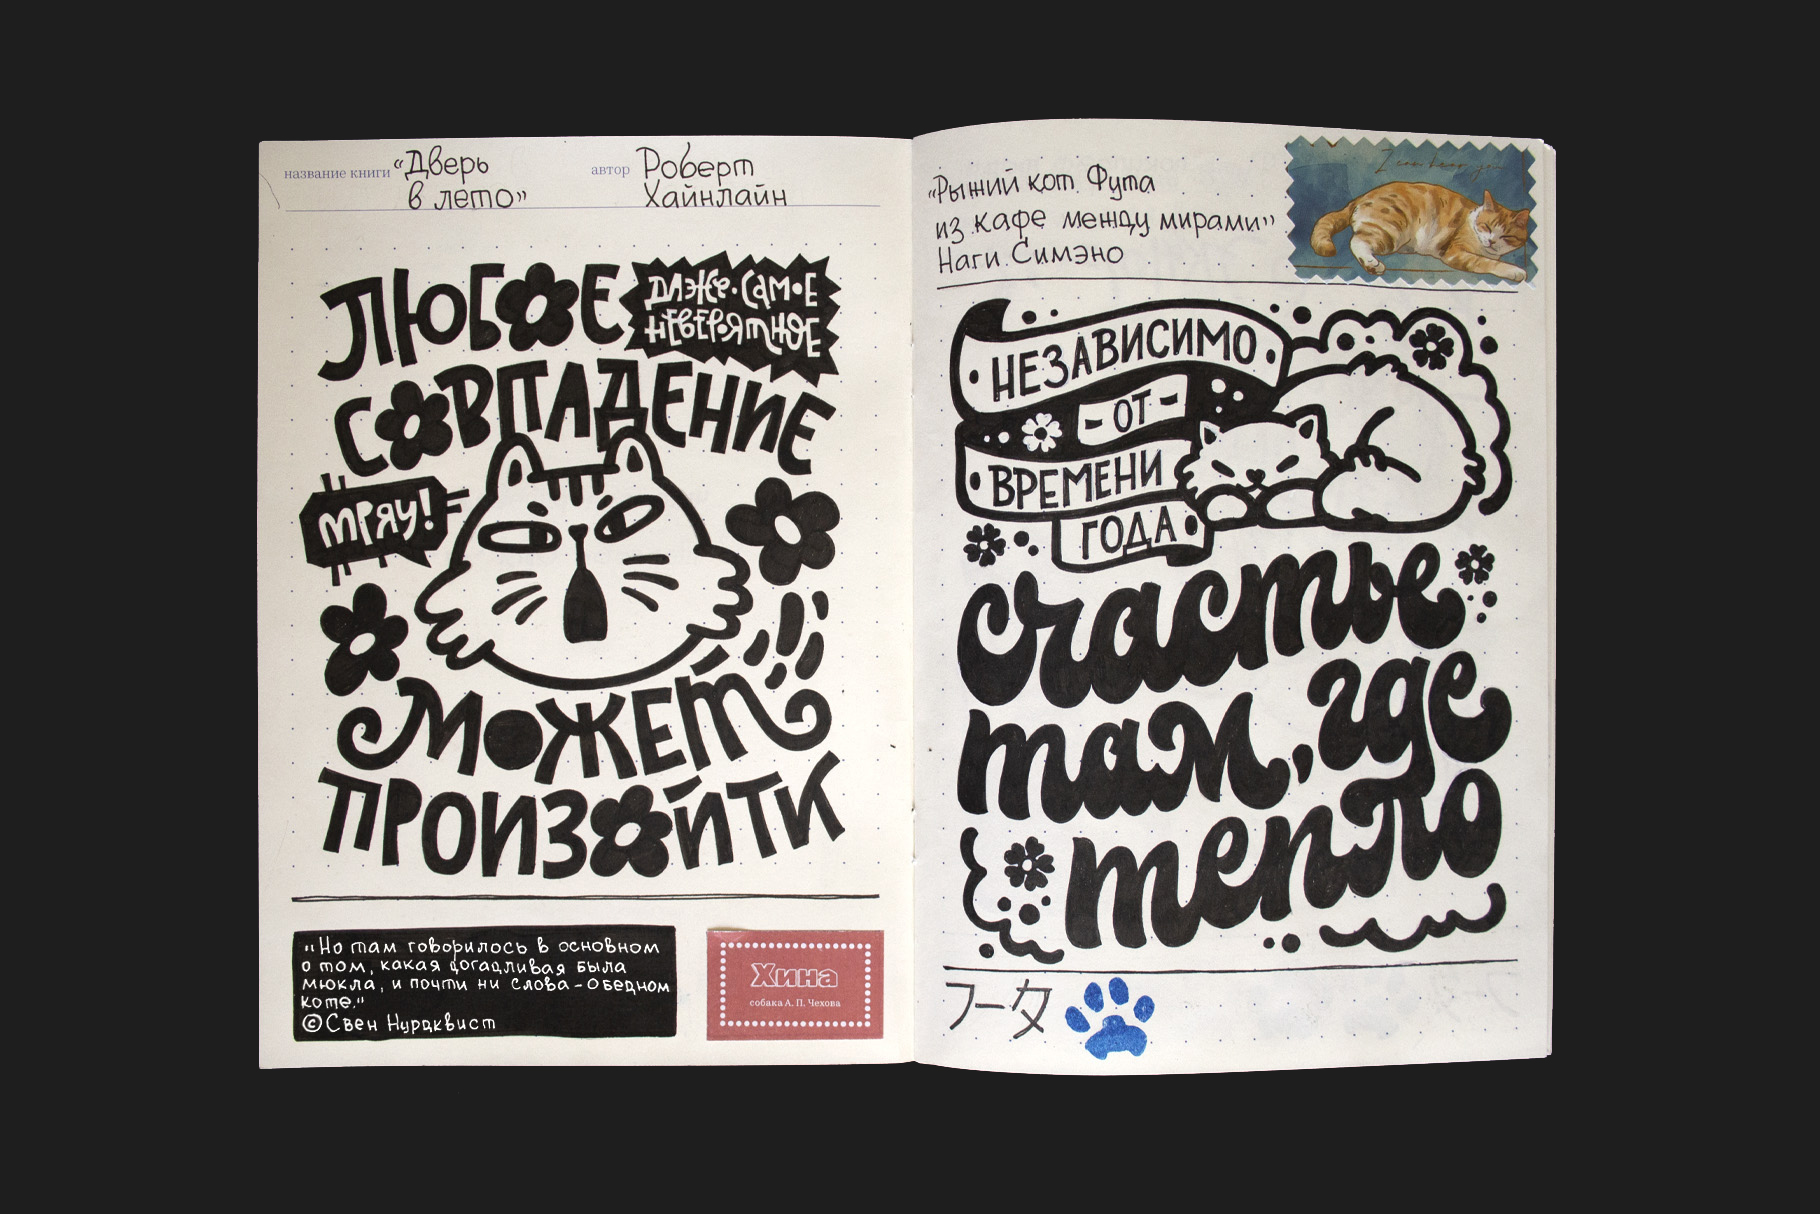 название книги “Дверь
в лето”
автор Роберт
Хайнлайн
ЛЮБОЕ
ДАЖЕ САМОЕ
НЕВЕРЯТНОЕ
СОВПАДЕНИЕ
МРЯУ!
МОЖЕТ
ПРОИЗОЙТИ
“Но там говорилось в основном
о том, какая догадливая была
мюкла, и почти ни слова - о бедном
коте.”
©Свен Нурдквист
Хина
собака А. П. Чехова
“Рыжий кот Фута
из кафе между мирами”
Наги Симэно
НЕЗАВИСИМО
- ОТ -
ВРЕМЕНИ
ГОДА
счастье
там, где
тепло
フータ